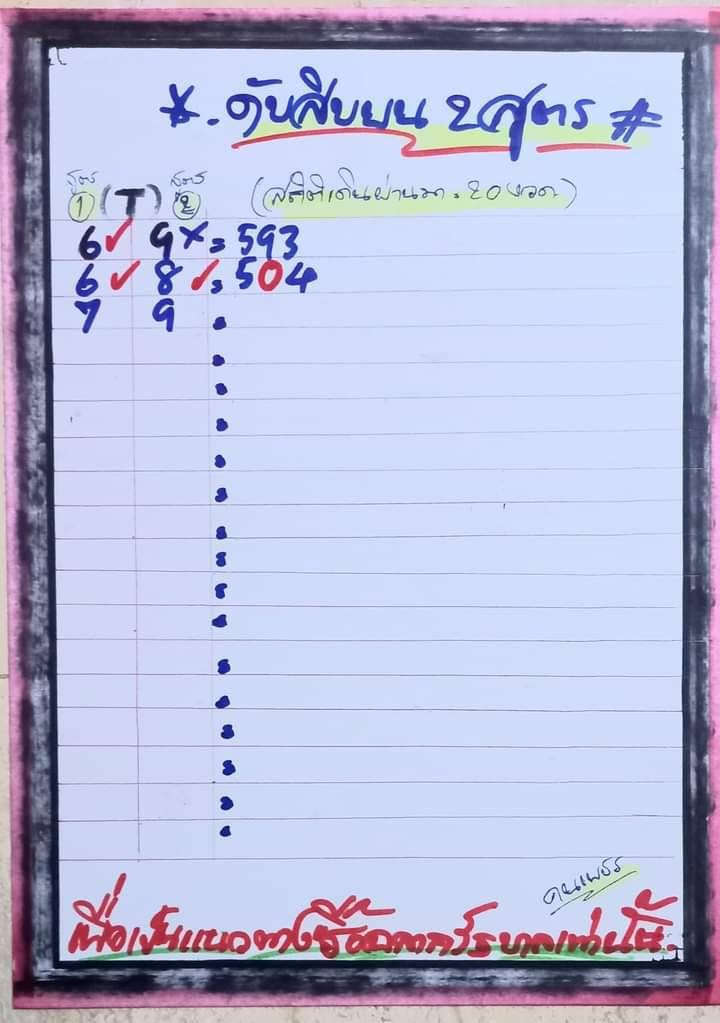 *. ดับสิบบน 2 สูตร #
สูตร 1 (T) สูตร 2 (สถิติเดินผ่านมา = 20 งวด)
6 ✓ 9 x = 593
6 ✓ 8 ✓ = 504
7 9
คนเพชร
เพื่อเป็นแนวทางซื้อฉลากกินรัฐบาลเท่านั้น